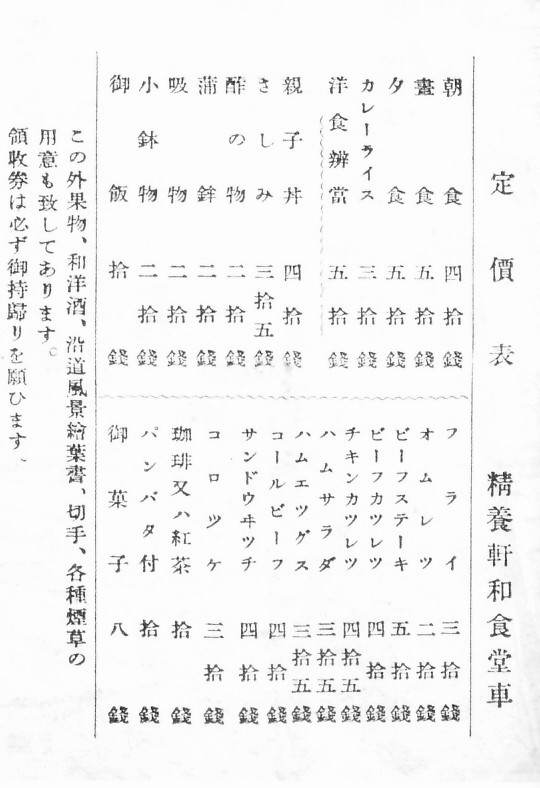 定價表 精養軒和食堂車
朝食 四拾錢
晝食 五拾錢
夕食 五拾錢
カレーライス 三拾錢
洋食辨當 五拾錢
親子丼 四拾錢
さしみ 三拾五錢
酢の物 二拾錢
蒲鉾 二拾錢
吸物 二拾錢
小鉢物 二拾錢
御飯 拾錢
フライ 三拾錢
オムレツ 二拾錢
ビーフステーキ 五拾錢
ビーフカツレツ 四拾錢
チキンカツレツ 四拾五錢
ハムサラダ 三拾五錢
ハムエツグス 三拾五錢
コールビーフ 四拾錢
サンドウヰツチ 四拾錢
コロツケ 三拾錢
珈琲又ハ紅茶 拾錢
パンバタ付 拾錢
御菓子 八錢
この外果物、和洋酒、沿道風景繪葉書、切手、各種煙草の
用意も致してあります。
領收券は必ず御持歸りを願ひます、